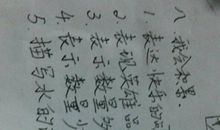 八、我会积累.
1. 表达快乐的
2. 表现英雄品
3 表示数量
4. 表示数量少
5. 描写水的